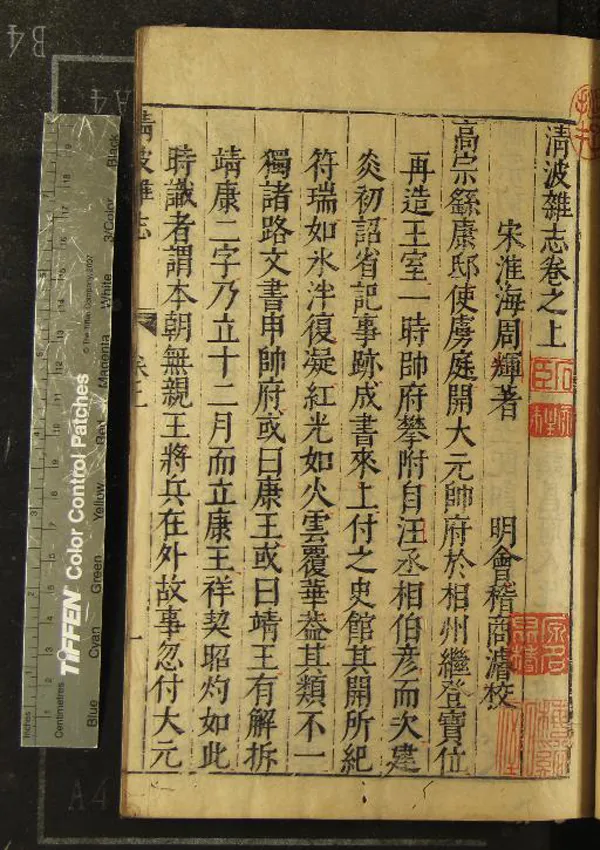 清波雜志卷之上
宋淮海周輝著 明會稽商濬校
高宗繇康邸使虜庭開大元帥府於相州繼登寶位
再造王室一時帥府攀附自汪丞相伯彥而次建
炎初詔省記事跡成書來上付之史館其開所紀
符瑞如氷泮復凝紅光如火雲覆華葢其類不一
獨諸路文書申帥府或曰康王或曰靖王有解拆
靖康二字乃立十二月而立康王祥契昭灼如此
時識者謂本朝無親王將兵在外故事忽付大元
清波雜志
一
B4
A4
A4
Inches
Centimetres
TIFFEN Color Control Patches
© The Tiffen Company, 2007
Blue
Cyan
Green
Yellow
Red
Magenta
White
3/Color
Black